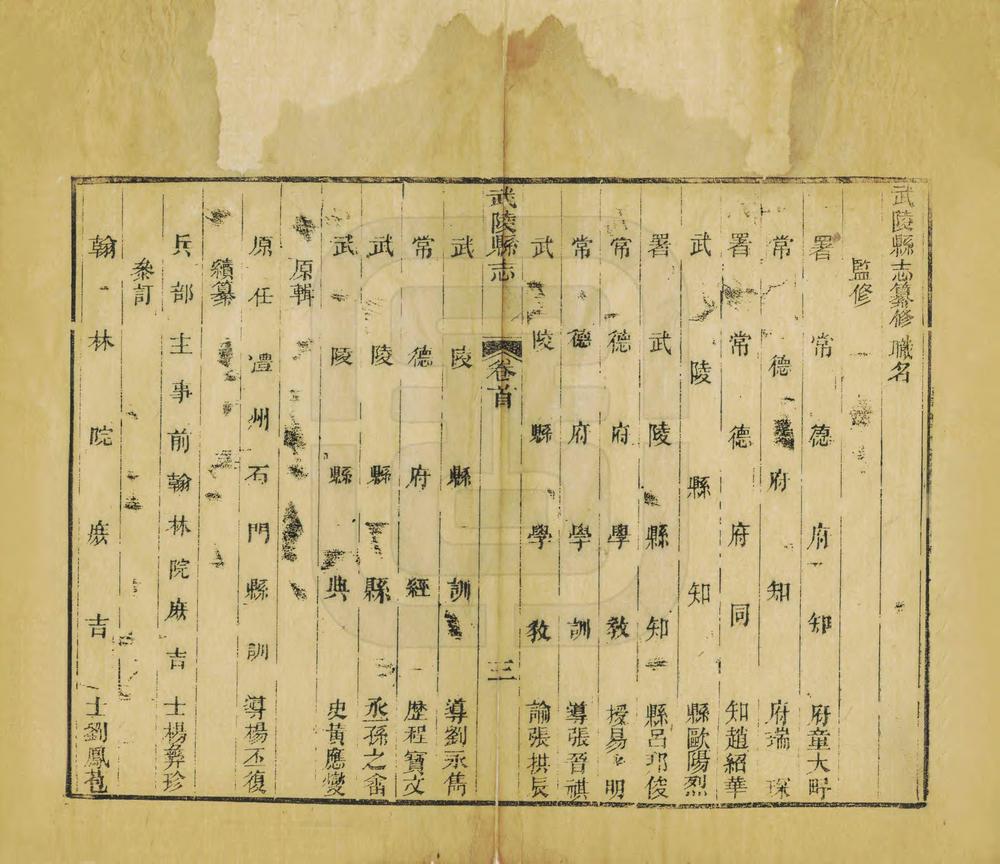 武陵縣志纂修職名
監修
署常德府知府童大
常德府知府瑞琛
署常德府同知趙紹華
武陵縣知縣歐陽烈
署武陵縣知縣呂邦俊
常德府學教授易明
常德府學訓導張晉祺
武陵縣學教諭張拱辰
武陵縣志
卷首
三
武陵縣訓導劉永儁
常德府經歷程寶文
武陵縣縣丞孫之畬
武陵縣典史黃應燮
原輯
原任澧州石門縣訓導楊丕復
續纂
兵部主事前翰林院庶吉士楊彝珍
叅訂
翰林院庶吉士劉鳳苞